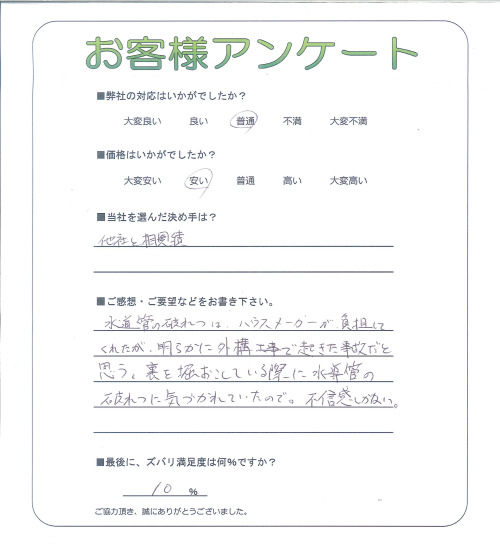 お客様アンケート
■弊社の対応はいかがでしたか?
大変良い 良い 普通 不満 大変不満
■価格はいかがでしたか?
大変安い 安い 普通 高い 大変高い
■当社を選んだ決め手は?
他社と相見積
■ご感想・ご要望などをお書き下さい。
水道管の破れつは、ハウスメーカーが、負担して
くれたが、明らかに外構工事で起きた事故だと
思う。裏を掘おこしている際に水道管の
破れつに気づかれていたので。不信感しかない。
■最後に、ズバリ満足度は何%ですか?
10 %
ご協力頂き、誠にありがとうございました。